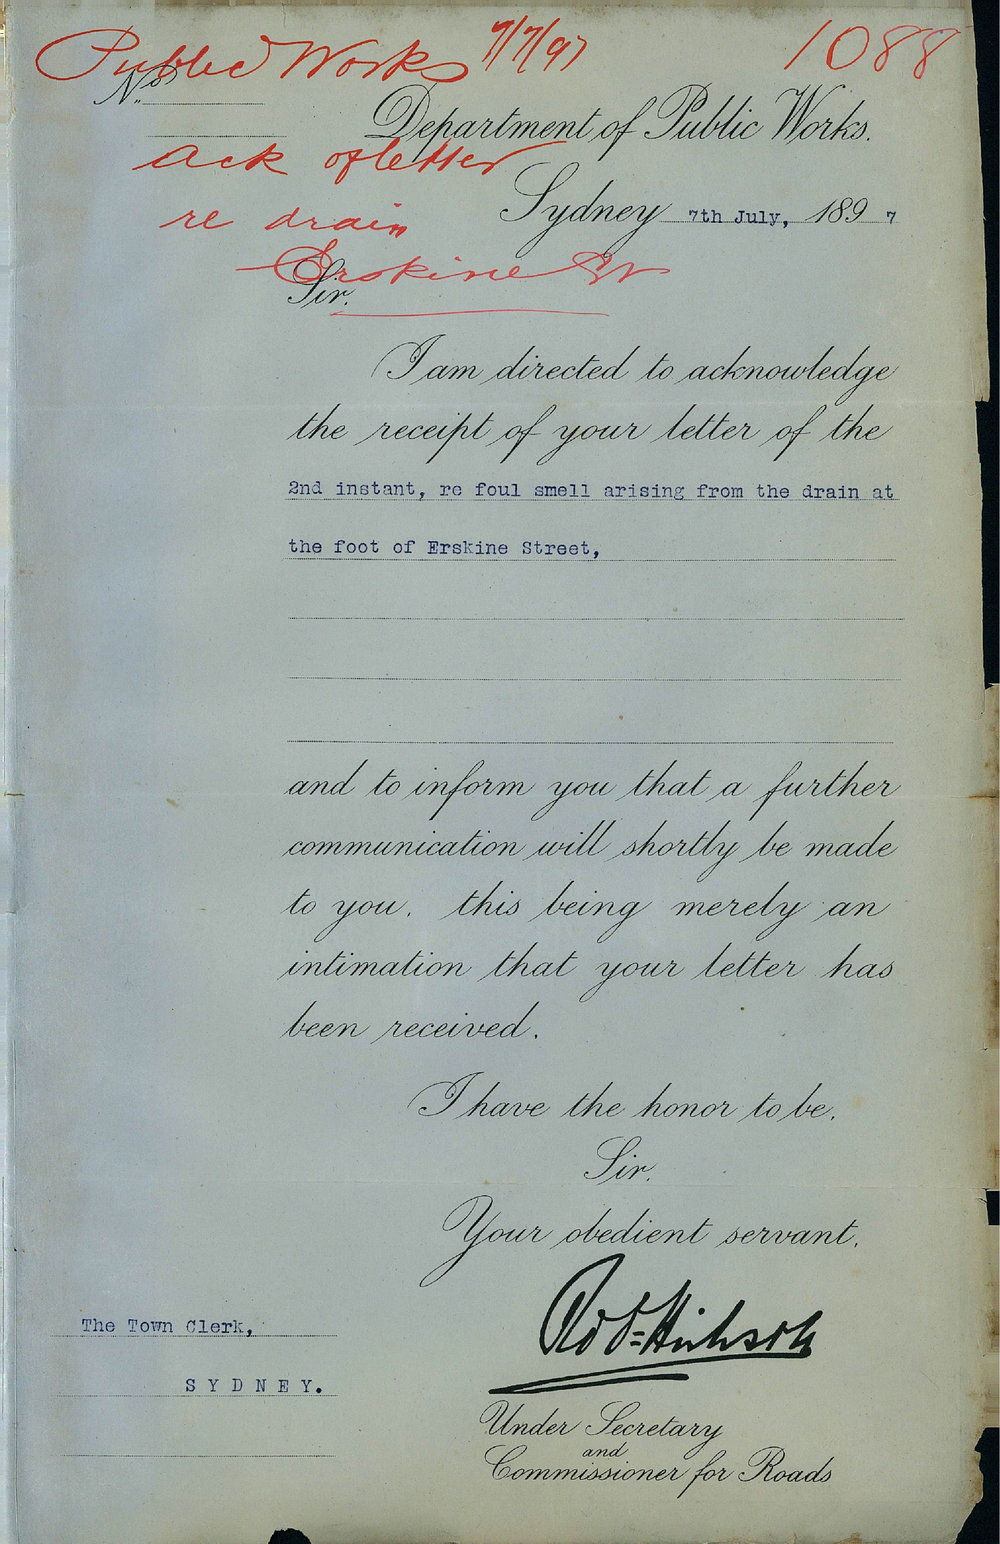 Public Works 7/7/97 1088
No.
Department of Public Works.
Ack of letter
re drain
Sydney 7th July, 1897
Erskine St
Sir.
I am directed to acknowledge
the receipt of your letter of the
2nd instant, re foul smell arising from the drain at
the foot of Erskine Street,
and to inform you that a further
communication will shortly be made
to you, this being merely an
intimation that your letter has
been received.
I have the honor to be,
Sir,
Your obedient servant,
The Town Clerk,
SYDNEY.
Under Secretary
and
Commissioner for Roads